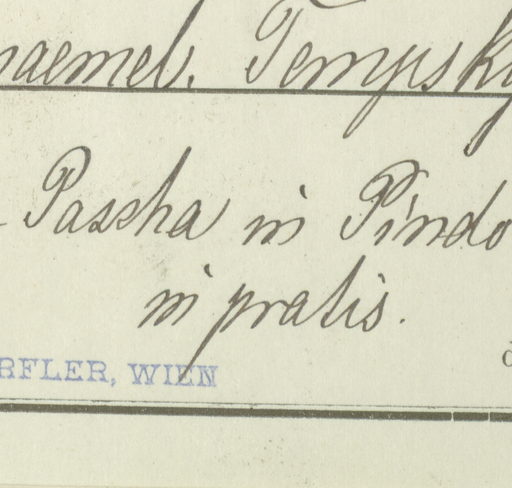 haemel. Tempsky
Pascha in Pindo
in pratis.
d
RFLER, WIEN